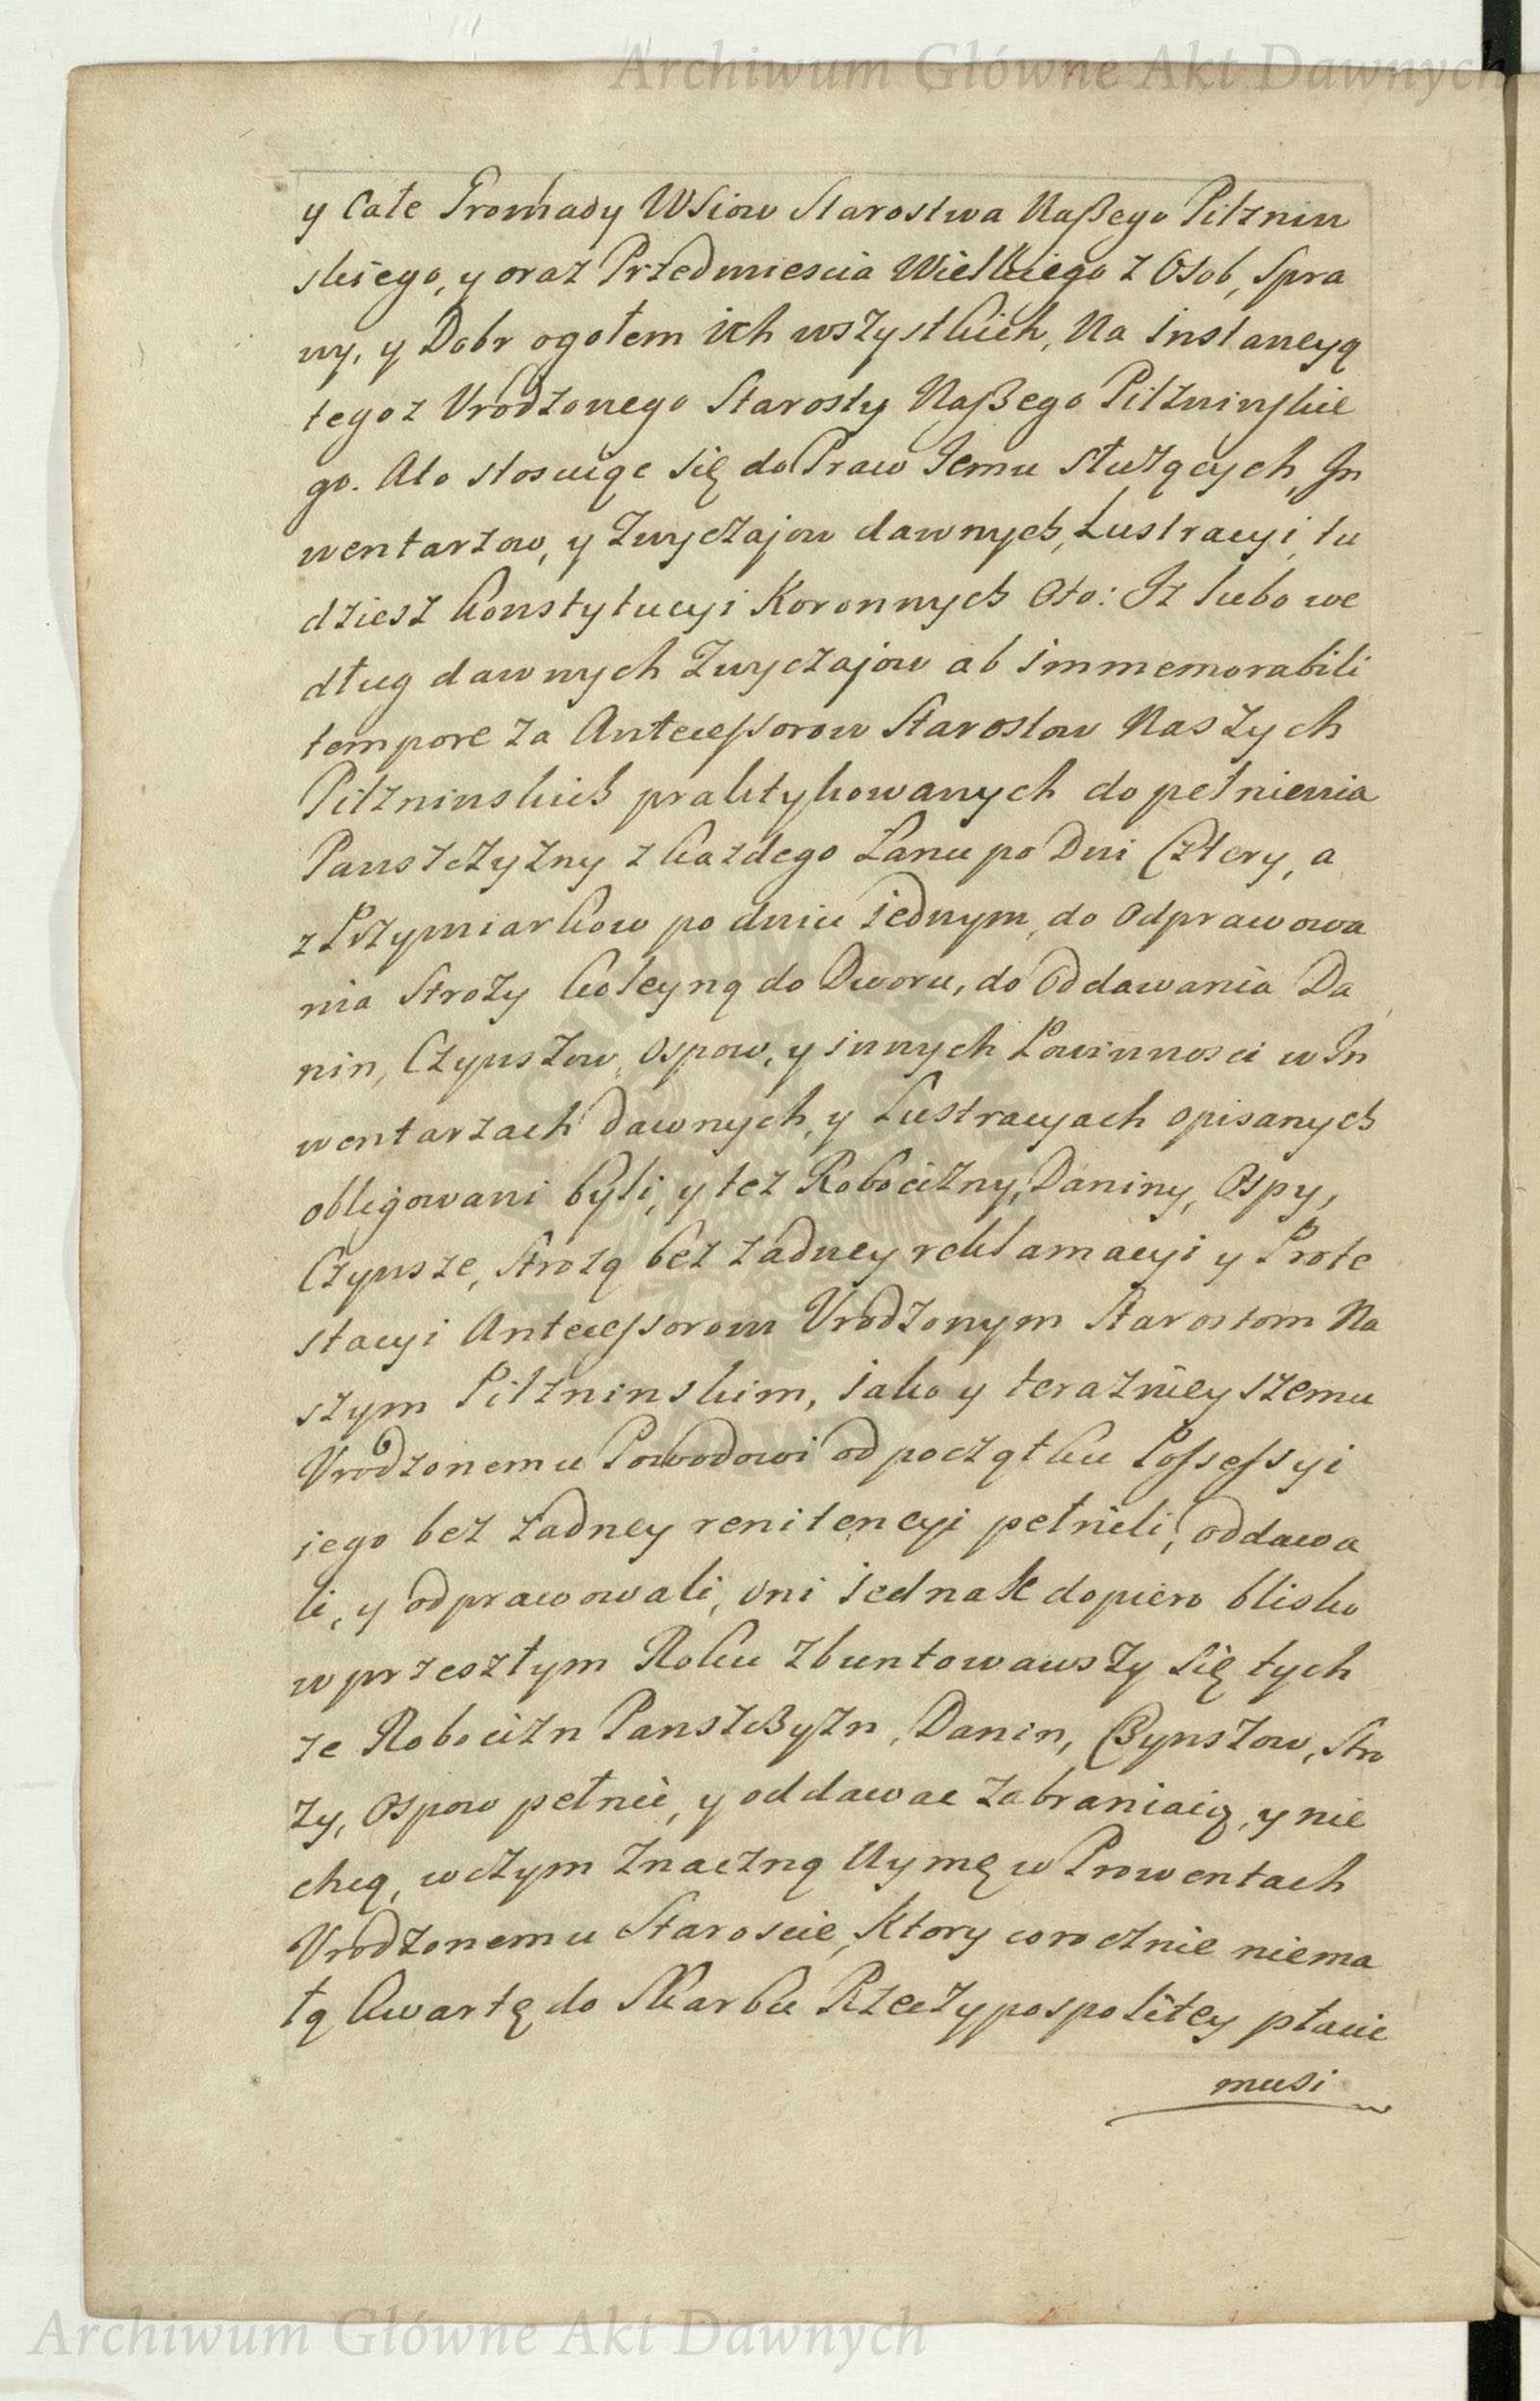 Archiwum Główne Akt Dawnych
y Całe Gromady WSiow Starostwa Naszego Pilznin
skiego, y oraz Przedmiescia Wielkiego z Osob, Spra
wy, y Dobr ogołem ich wszystkich, Na Instancyą
tegoz Urodzonego Starosty Naszego Pilzninskie
go. Ato stosuiąc się do Praw Jemu służących, In
wentarzow, y Zwyczajow dawnych, Lustracyi, tu
dziesz Konstytucyi Koronnych Oto: Iz lubo we
dług dawnych Zwyczajow ab immemorabili
tempore za Antecessorow Starostow Naszych
Pilzninskich praktykowanych do pełnienia
Panszczyzny z każdego Łanu po Dni Cztery, a
z Przymiarkow po dniu iednym, do Odprawowa
nia Stroży koleyną do Dworu, do Oddawania Da
nin, Czynszow, Ospow, y innych Powinnosci w In
wentarzach Dawnych, y Lustracyach opisanych
obligowani byli, y tez Robocizny, Daniny, Ospy,
Czynsze, Strożą bez zadney reklamacyi y Prote
stacyi Antecessorom Urodzonym Starostom Na
szym Pilzninskim, iako y teraznieyszemu
Urodzonemu Powodowi od początku Possessyi
iego bez zadney renitencyi pełnili, oddawa
li, y odprawowali, oni iednak dopiero blisko
w przeszłym Roku zbuntowawszy się tych
ze Robocizn Panszczyzn, Danin, Czynszow, Stro
ży, Ospow pełnic, y oddawac zabraniaią, y nie
chcą, w czym Znaczną Uymę w Prowentach
Urodzonemu Staroscie, Ktory corocznie niema
łą kwartę do Skarbu Rzeczypospolitey płacic
musi
Archiwum Główne Akt Dawnych